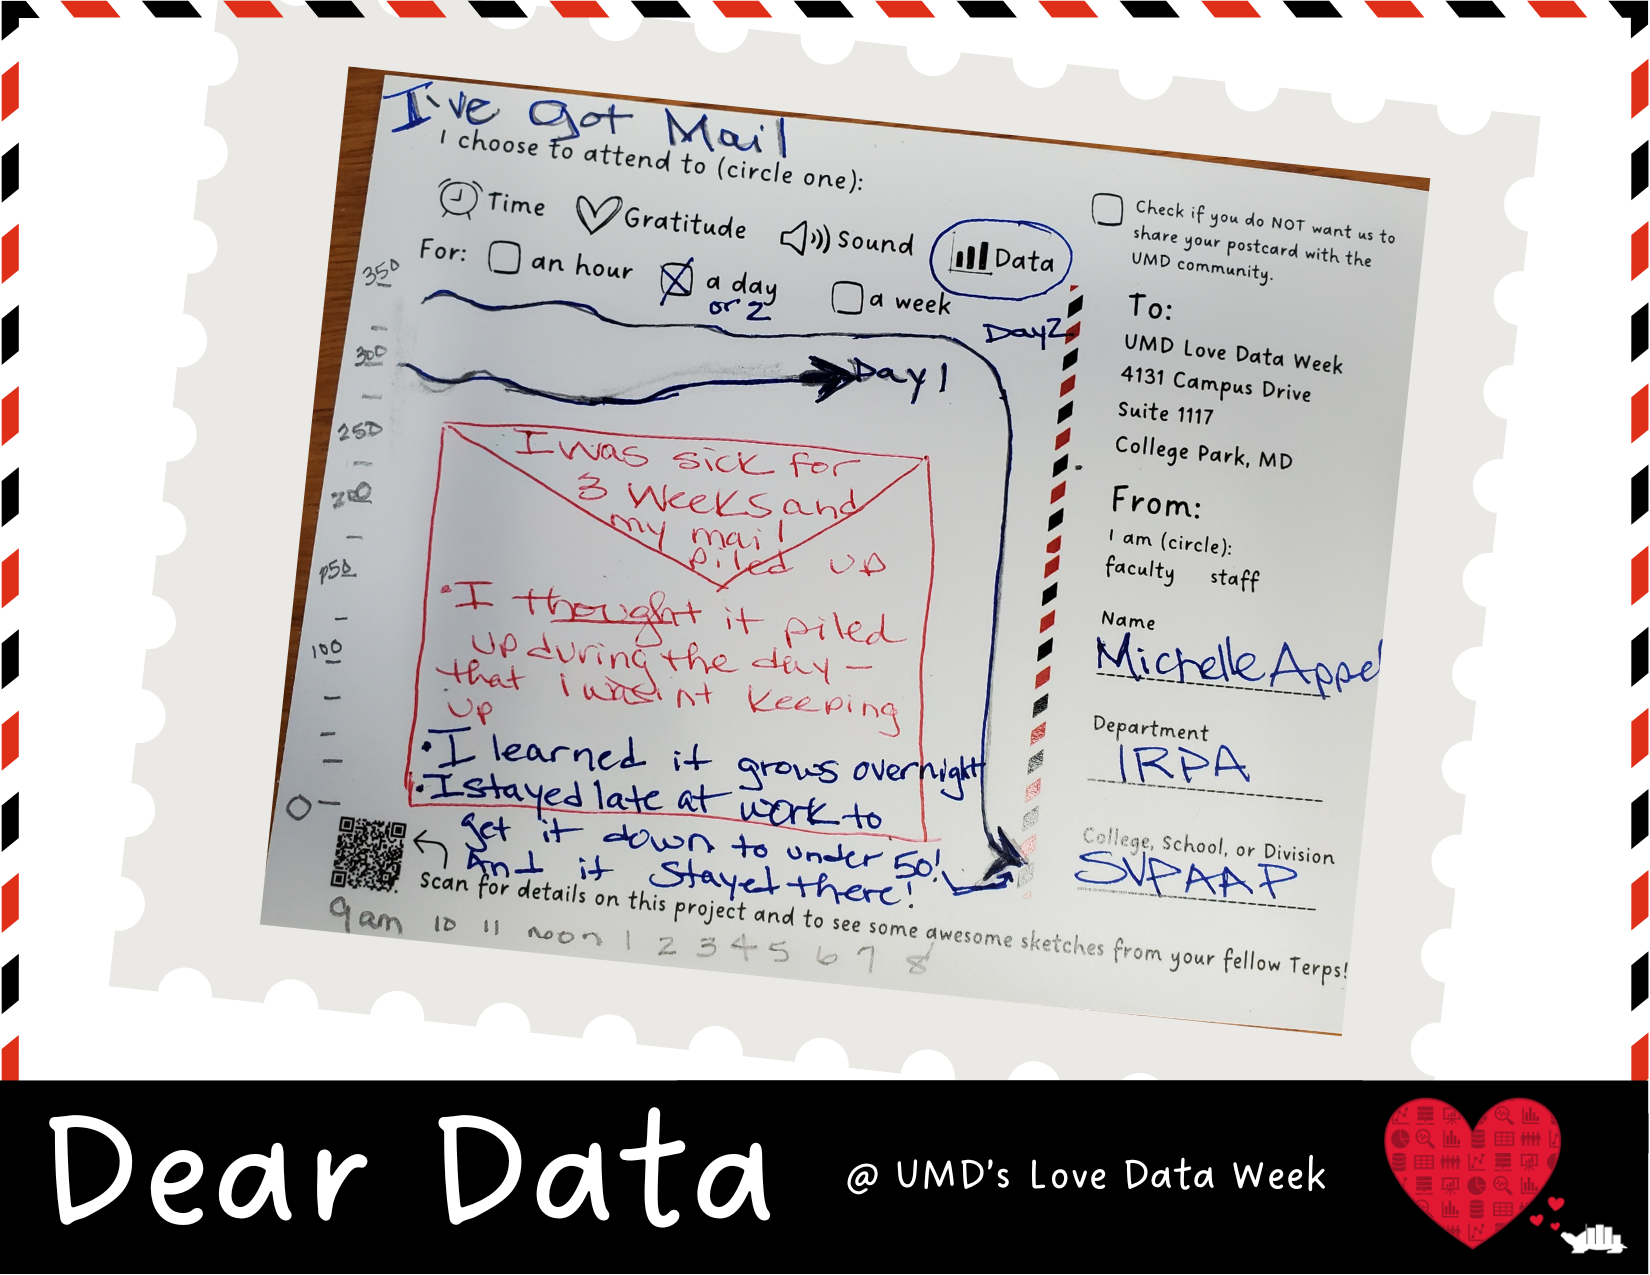 I've Got Mail
I choose to attend to (circle one):
Time Gratitude Sound Data
For: an hour a day a week
or 2
Check if you do NOT want us to
share your postcard with the
UMD community.
To:
UMD Love Data Week
4131 Campus Drive
Suite 1117
College Park, MD
From:
I am (circle):
faculty staff
Name
Michelle Appel
Department
IRPA
College, School, or Division
SVPAAP
350
300
250
200
150
100
0
Day 2
Day 1
I was sick for
3 weeks and
my mail
piled up
• I thought it piled
up during the day –
that i wasint keeping
up
• I learned it grows overnight
• I stayed late at work to
get it down to under 50!
And it stayed there!
Scan for details on this project and to see some awesome sketches from your fellow Terps!
9am 10 11 noon 1 2 3 4 5 6 7 8
Dear Data
@ UMD's Love Data Week